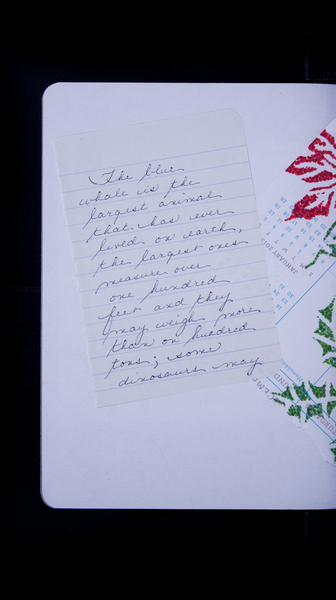 The blue
whale is the
largest animal
that has ever
lived on earth,
the largest ones
measure over
one hundred
feet and they
may weigh more
than on hundred
tons; some
dinosaurs may
JANUARY 201